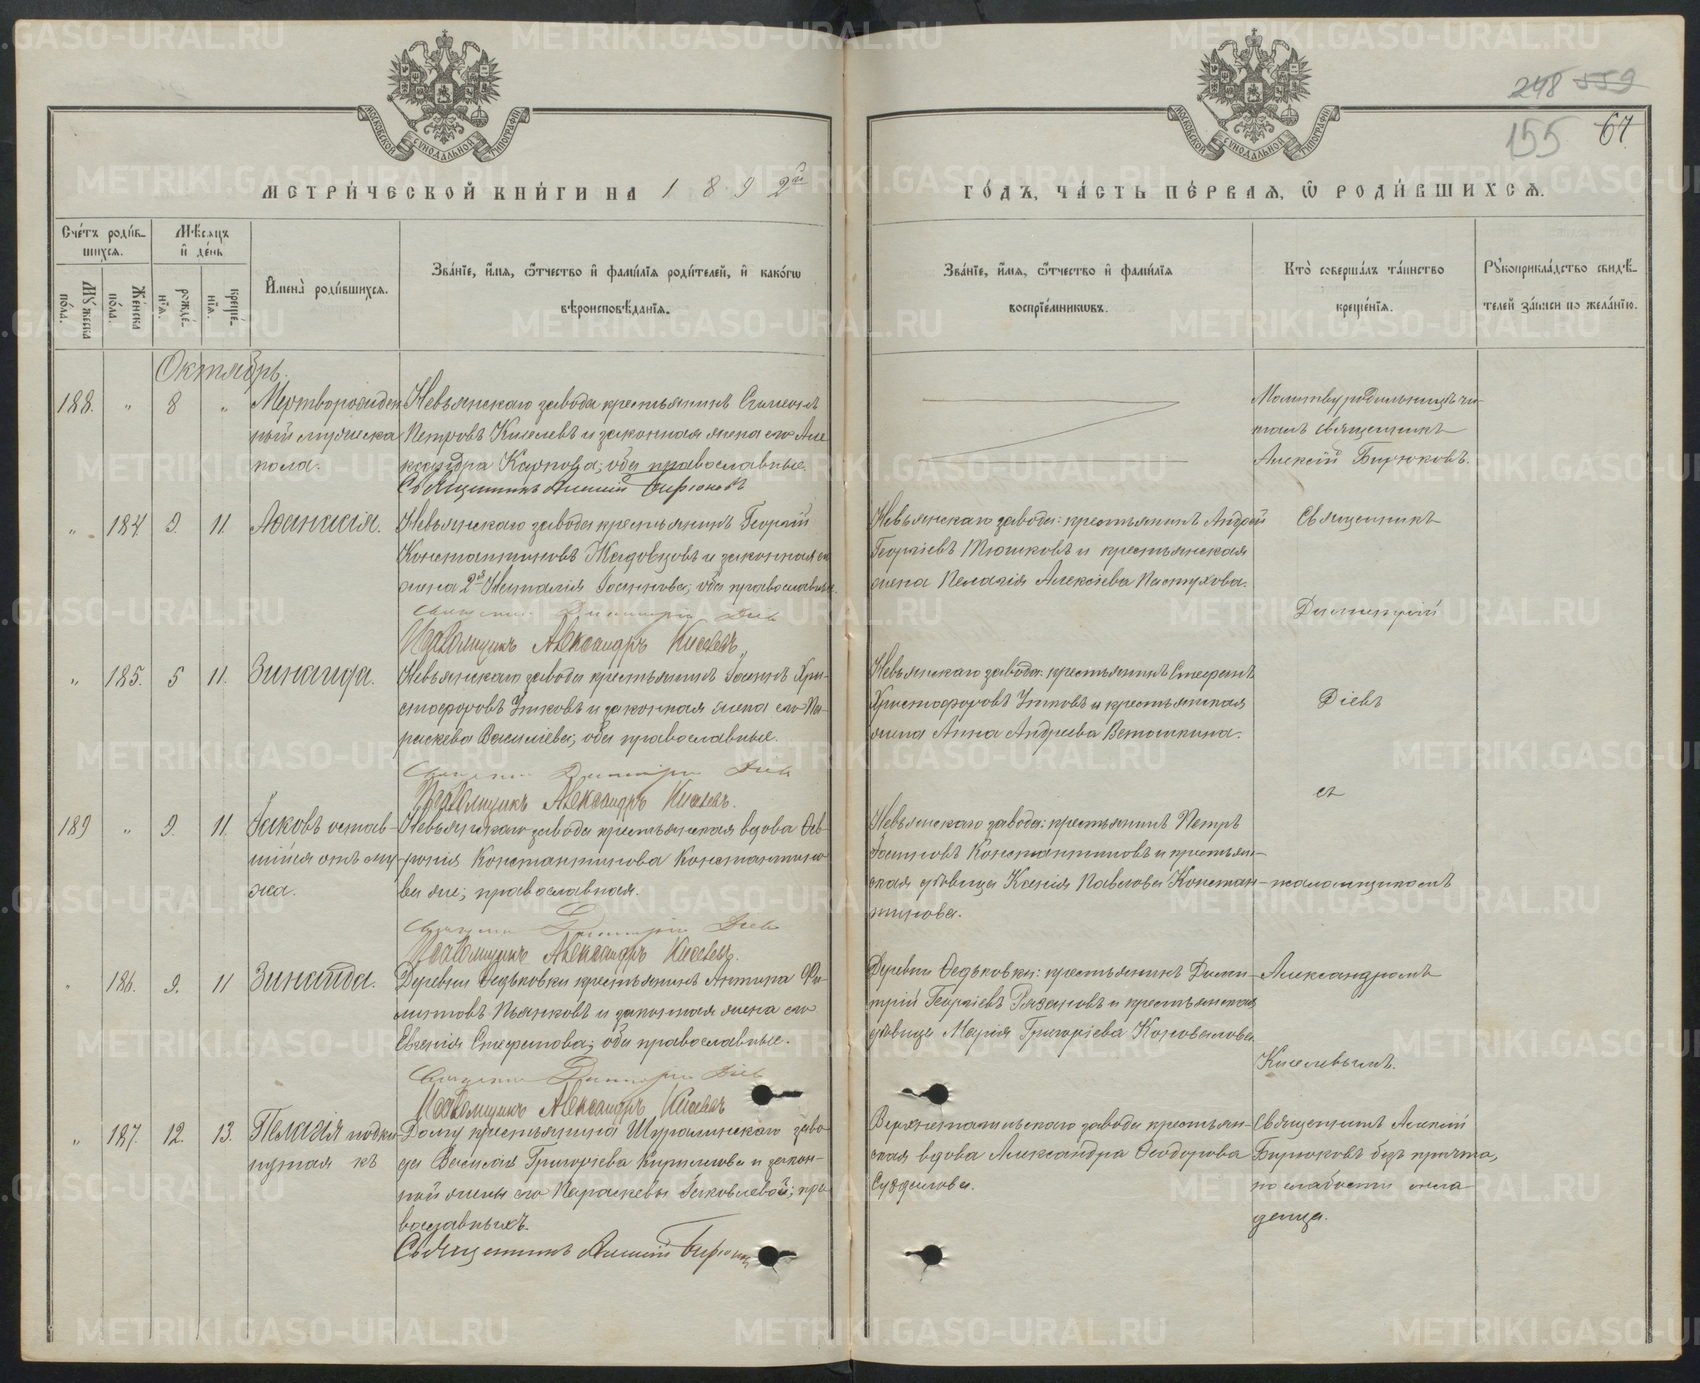 248 559
155 67
МЕТРИ́ЧЕСКОЙ КНИ́ГИ НА 1892й
ГО́ДЪ, ЧА́СТЬ ПЕ́РВАЯ, Ѡ РОДИ́ВШИХСЯ.
Сче́тъ роди́вшихся.
Мѣсяцъ и де́нь
Му́жеска по́ла.
Же́нска по́ла.
рожде́нїя.
креще́нїя.
Имена̀ роди́вшихся.
Зва́нїе, и́мя, ѻ́тчество и фами́лїя роди́телей, и како́гѡ
вѣроисповѣ́данїя.
Зва́нїе, и́мя, ѻ́тчество и фами́лїя
воспрїе́мникѡвъ.
Кто̀ соверша́лъ та́инство
креще́нїя.
Рꙋкоприкла́дство свидѣ́телей за́писи по жела́нїю.
Октябрь.
188. " 8 "
Мертворожден
ный мужеска
пола.
Невьянскаго завода крестьянинъ Симеонъ
Петровъ Киселевъ и законная жена его Але
ксандра Карпова; оба православные.
Священникъ Алексій Бирюковъ
Молитву родильницѣ чи-
талъ священникъ
Алексій Бирюковъ.
" 184. 9. 11.
Аѳанасія.
Невьянскаго завода крестьянинъ Георгій
Константиновъ и законная
жена 2я Наталія Іоаннова; оба православные.
Священникъ Димитрій Діевъ
Псаломщикъ Александръ Киселевъ
Невьянскаго завода: крестьянинъ Андрей
Георгіевъ и крестьянская
жена Пелагія Алексіева Пастухова.
Священникъ
Димитрій
" 185. 5 11.
Зинаида.
Невьянскаго завода крестьянинъ Іоаннъ Хри-
стофоровъ и законная жена его Па-
раскева Василіева; оба православные.
Священникъ Димитрій Діевъ
Псаломщикъ Александръ Киселевъ.
Невьянскаго завода: крестьянинъ Стефанъ
Христофоровъ и крестьянская
жена Анна Андреева Ветошкина.
Діевъ
съ
189 " 9. 11.
Іаковъ остав-
шійся отъ му
жа.
Невьянскаго завода крестьянская вдова Фев-
ронія Константинова Константино
ва же; православная.
Священникъ Димитрій Діевъ
Псаломщикъ Александръ Киселевъ.
Невьянскаго завода: крестьянинъ Петръ
Константиновъ и крестьян-
ская дѣвица Ксенія Павлова Констан-
тинова.
псаломщикомъ
" 186. 9. 11
Зинаида.
Деревни Ѳедьковки крестьянинъ Антипа Фи-
липповъ Пьянковъ и законная жена его
Евгенія Стефанова; оба православные.
Священникъ Димитрій Діевъ
Псаломщикъ Александръ Киселевъ
Деревни Ѳедьковки: крестьянинъ Дими-
трій Георгіевъ Рязановъ и крестьянская
дѣвица Марія Григоріева Коновалова.
Александромъ
Киселевымъ.
" 187. 12. 13.
Пелагія подки
нутая къ
Дому крестьянина Шуралинскаго заво-
да Василія Григоріева Кириллова и закон-
ной жены его Параскевы Іаковлевой; пра-
вославныхъ.
Священникъ Алексій Бирюковъ
Верхнетагильскаго завода крестьян-
ская вдова Александра Ѳеодорова
Суздалова.
Священникъ Алексій
Бирюковъ безъ причта,
по слабости мла
денца.